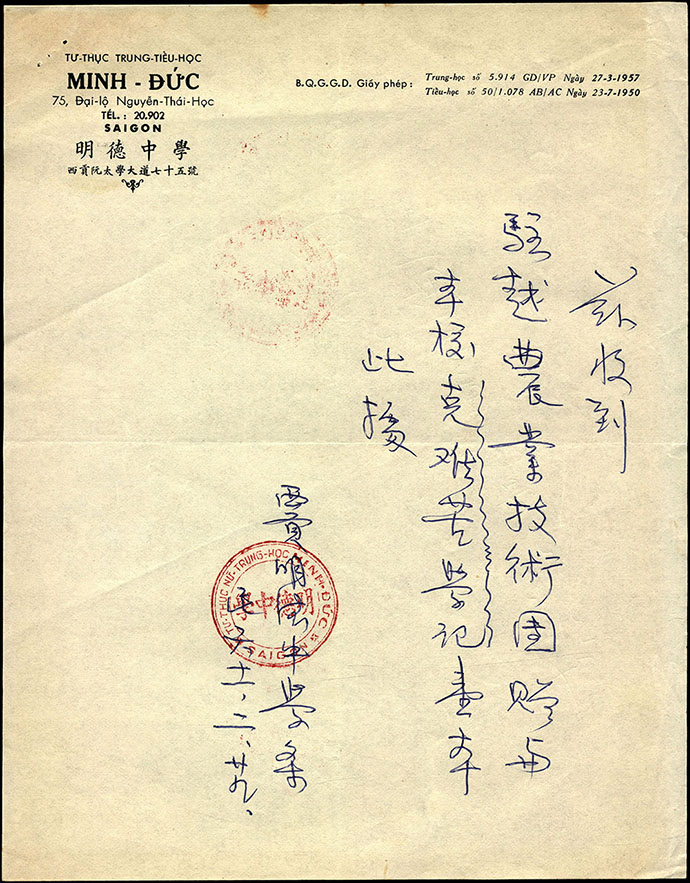 TƯ-THỤC TRUNG-TIỂU-HỌC
MINH - ĐỨC
75, Đại-lộ Nguyễn-Thái-Học
TÉL. : 20.902
SAIGON
明德中學
西貢阮太學大道七十五號
B.Q.G.G.D. Giấy phép :
Trung-học số 5.914 GD/VP Ngày 27-3-1957
Tiểu-học số 50/1.078 AB/AC Ngày 23-7-1950
茲收到
駐越農業技術團贈與
本校克難苦學記壹本
此據
西貢明德中學条
民六十一、二、廿九、
TƯ-THỤC NỮ-TRUNG-HỌC MINH-ĐỨC
學中德明
SAIGON